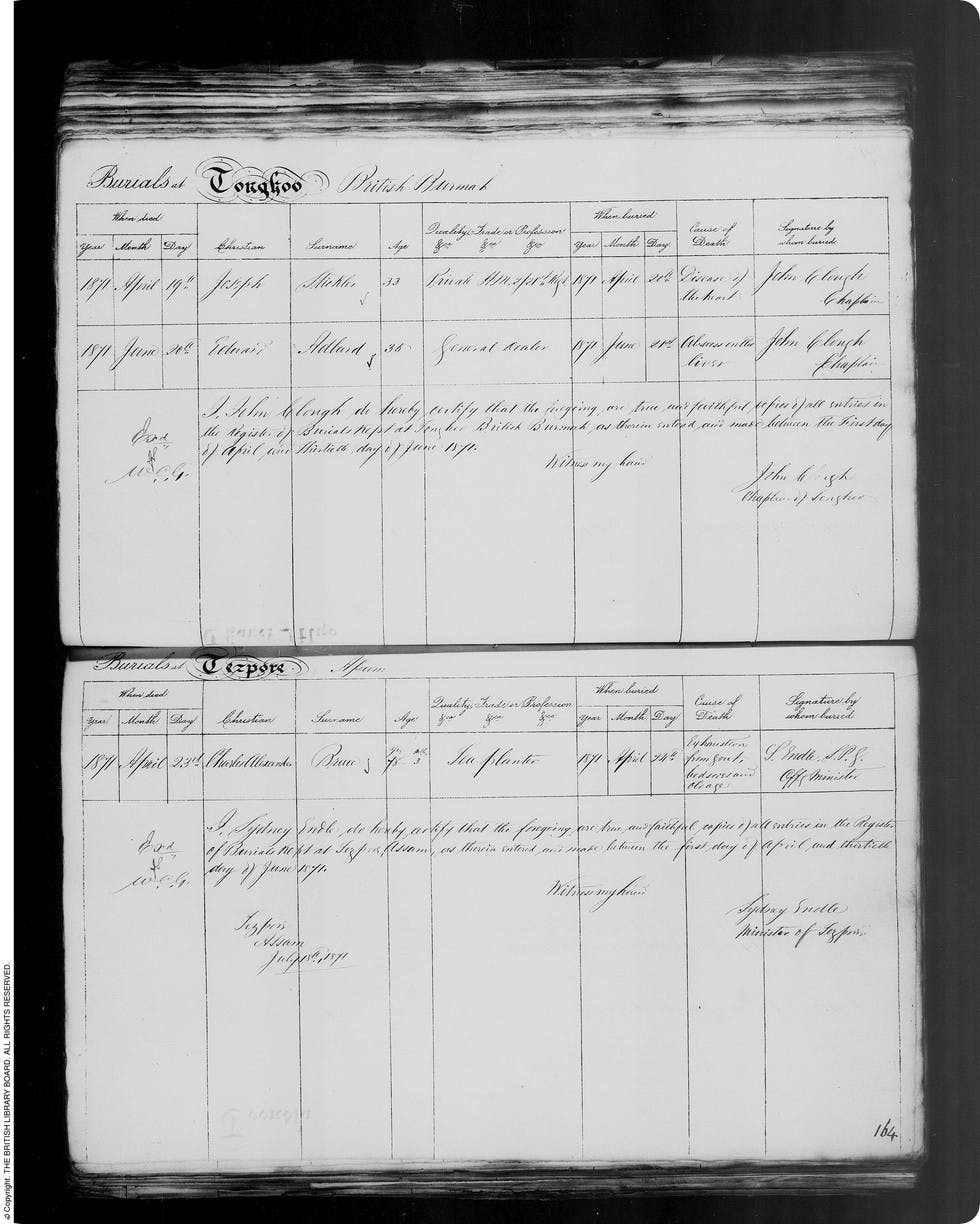 Burials at Tonghoo British Burmah
When died When buried
Year Month Day Christian Surname Age Quality, Trade or Profession Year Month Day Cause of Death Signature by whom buried
&ca &ca &ca
1871 April 19th Joseph Mickler 33 Private H.M. 2/21st Regt 1871 April 20th Disease of John Clough
the heart Chaplain
1871 June 20th Edward Adlard 35 General dealer 1871 June 21st Abscess on the John Clough
liver Chaplain
I, John Clough do hereby certify that the foregoing are true and faithful copies of all entries in
the Register of Burials kept at Tonghoo British Burmah as therein entered and made between the First day
of April and Thirtieth day of June 1871.
Witness my hand
Exd
W.C.G.
John Clough
Chaplain of Tonghoo
Burials at Tezpore Assam
When died When buried
Year Month Day Christian Surname Age Quality, Trade or Profession Year Month Day Cause of Death Signature by whom buried
&ca &ca &ca
1871 April 23rd Charles Alexander Bruce 78 3 Tea planter 1871 April 24th Exhaustion S. Endle. S.P.G.
from gout, Offg Minister
bedsores and
old age
I, Sydney Endle do hereby certify that the foregoing are true and faithful copies of all entries in the Register
of Burials kept at Tezpore, Assam, as therein entered and made between the first day of April and thirtieth
day of June 1871.
Witness my hand
Exd
W.C.G.
Sydney Endle
Minister of Tezpore
Tezpore
Assam
July 18th, 1871
164
© Copyright. THE BRITISH LIBRARY BOARD. ALL RIGHTS RESERVED.